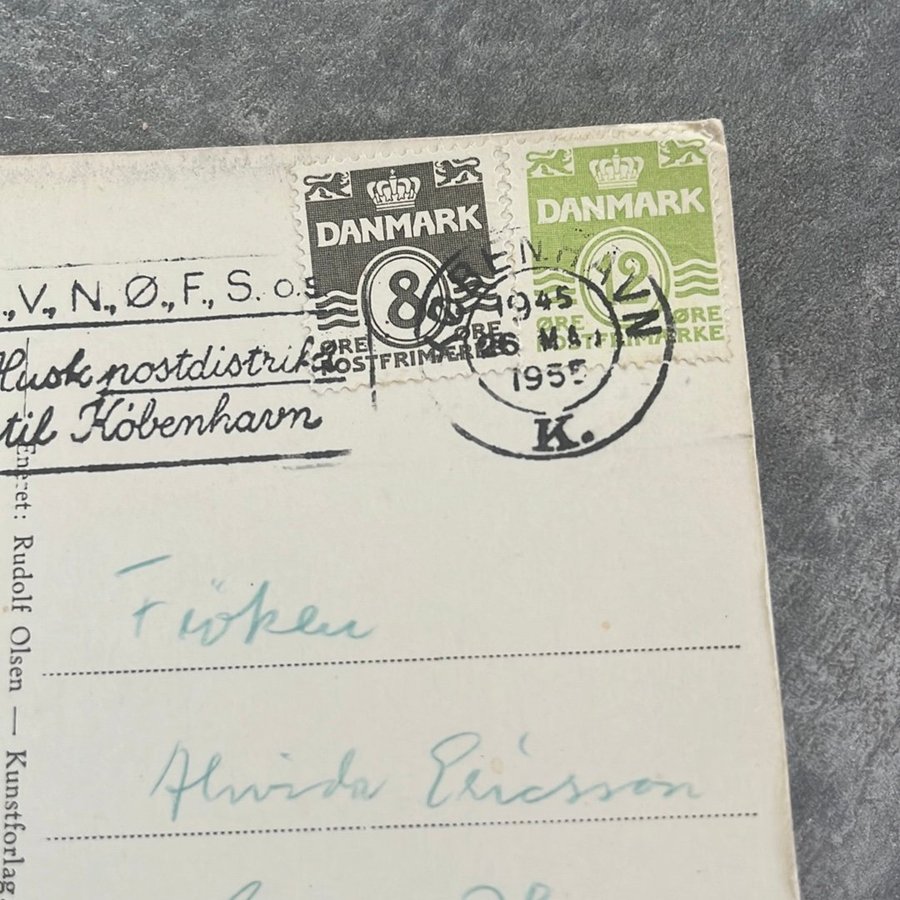 DANMARK
8
ØRE ØRE
POSTFRIMÆRKE
DANMARK
12
ØRE ØRE
POSTFRIMÆRKE
KØBENHAVN
1945
26 MAJ
1955
K.
., V., N., Ø., F., S. o.s
Husk postdistrikt
til København
Eneret: Rudolf Olsen — Kunstforlag
Fröken
Alvida Ericsson